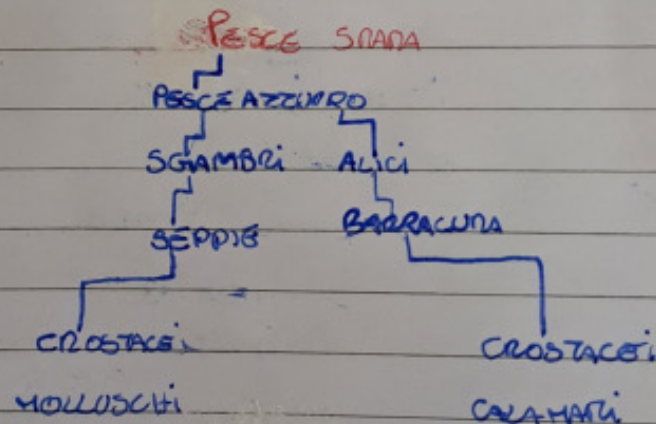 PESCE SPADA
PESCE AZZURRO
SGAMBRI ALICI
SEPPIE BARRACUDA
CROSTACEI CROSTACEI
MOLLUSCHI CALAMARI